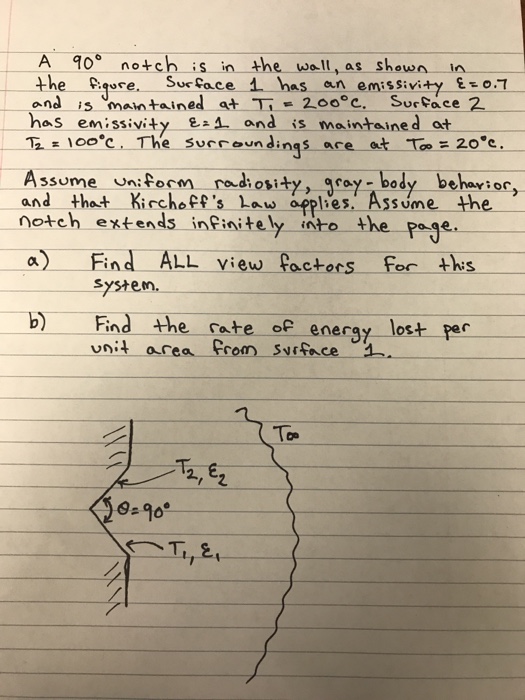 A 90° notch is in the wall, as shown in
the figure. Surface 1 has an emissivity ε=0.7
and is maintained at T₁ = 200°C. Surface 2
has emissivity ε=1 and is maintained at
T₂ = 100°C. The surroundings are at T∞ = 20°C.
Assume uniform radiosity, gray-body behavior,
and that Kirchoff's Law applies. Assume the
notch extends infinitely into the page.
a) Find ALL view factors for this
system.
b) Find the rate of energy lost per
unit area from surface 1.
T∞
T₂, ε₂
θ=90°
T₁, ε₁